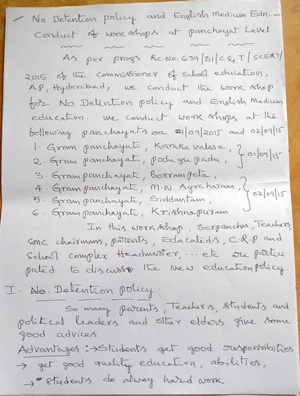 No Detention policy and English Medium Edn. -
Conduct of work shops at panchayat Level
As per progs Rc No 639/B1/C&T/SCERT/
2015 of the commissioner of school education,
AP, Hyderabad, we conduct the work shop
for No Detention policy and English Medium
education. we conduct work shops at the
following panchayats on 01/09/2015 and 02/09/15
1. Gram panchayate, Korakavalasa, } 01/09/15
2. Gram panchayate, podugupadu,
3. Gram panchayate, Borrampeta,
4. Gram panchayate, M.N Agraharam, } 02/09/15
5. Gram panchayate, Siddantam,
6. Gram panchayate, Krishnapuram
In this work shop. Sarpanchas, Teachers,
SMC chairmans, parents, Educateds, C.R.P and
School complex Headmaster, ... etc are partici
pated to discuss the new education policy.
I. No. Detention policy:
So many parents, Teachers, students and
political leaders and other elders give some
good advices
Advantages :→ Students get good responsibities
→ get good quality education, abilities,
→ students do alway hard work